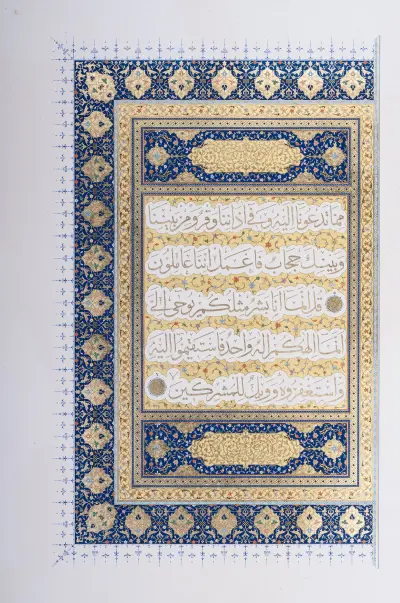 مما تدعونا اليه وفي آذاننا وقر ومن بيننا
وبينك حجاب فاعمل اننا عاملون
قل انما انا بشر مثلكم يوحى الي
انما الهكم اله واحد فاستقيموا اليه
واستغفروه وويل للمشركين